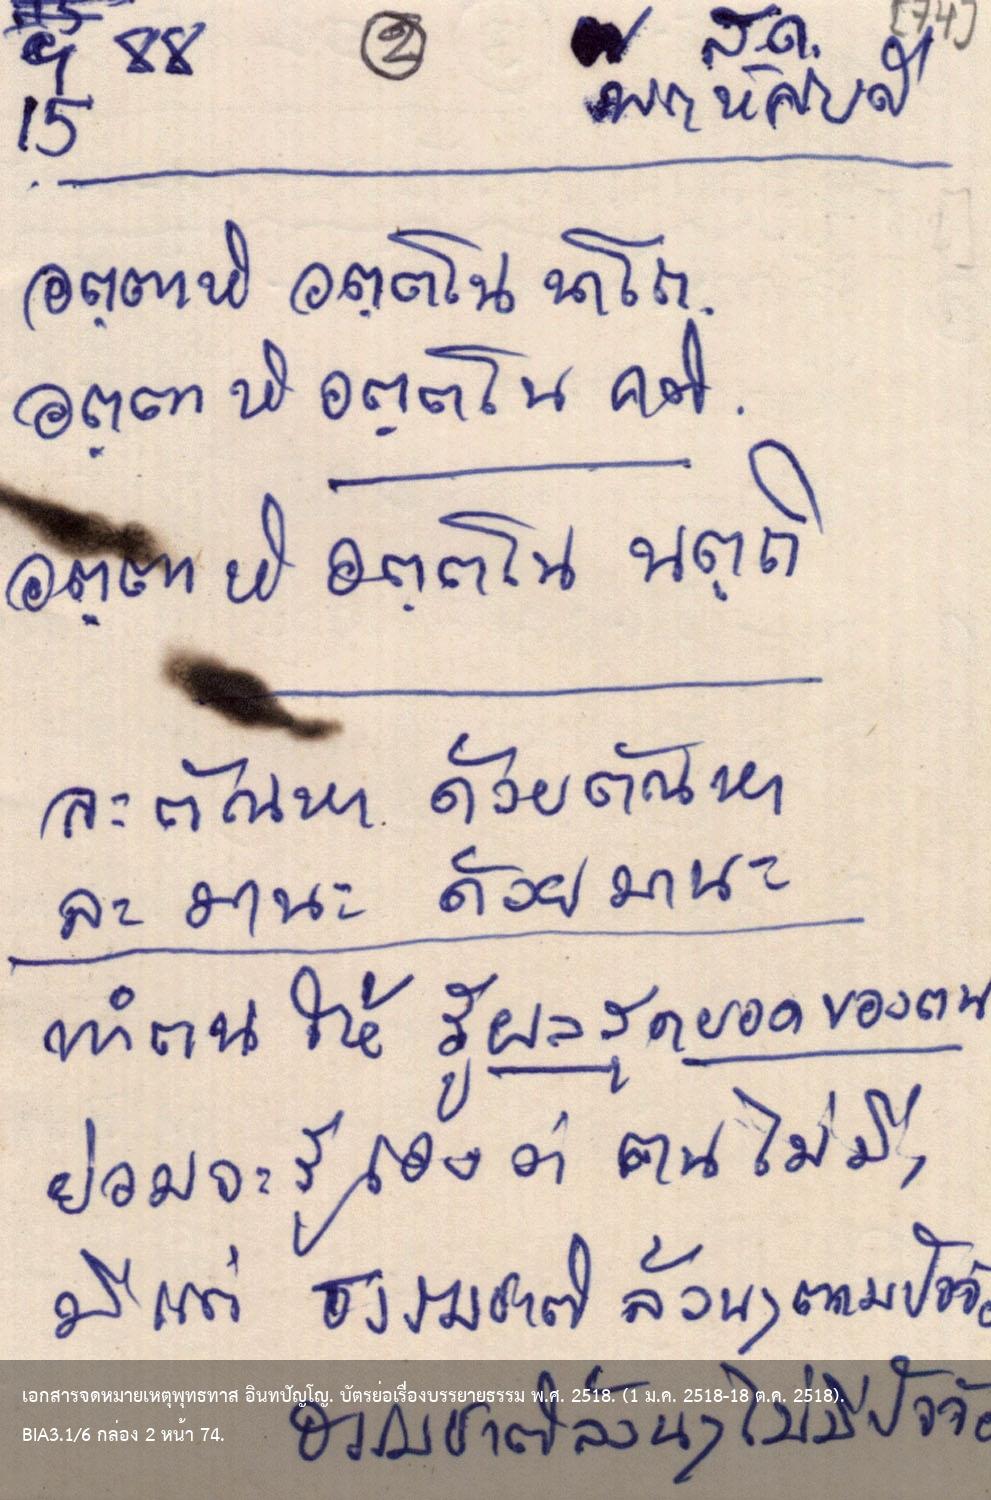 88 ② ส.ด. [74]
15
อตฺตาหิ อตฺตโน นาโถ.
อตฺตา หิ อตฺตโน คติ.
อตฺตา หิ อตฺตโน นตฺถิ
ละตัณหา ด้วยตัณหา
ละ มานะ ด้วยมานะ
ทำตน ให้ รู้ผลสุดยอดของตน
ย่อมจะรู้เองว่า ตนไม่มี,
มีแต่ ธรรมชาติ ล้วนๆ ตามปัจจั
ธรรมชาติล้วนๆ ไม่มีปัจจั
เอกสารจดหมายเหตุพุทธทาส อินทปัญโญ. บัตรย่อเรื่องบรรยายธรรม พ.ศ. 2518. (1 ม.ค. 2518-18 ต.ค. 2518).
BIA3.1/6 กล่อง 2 หน้า 74.